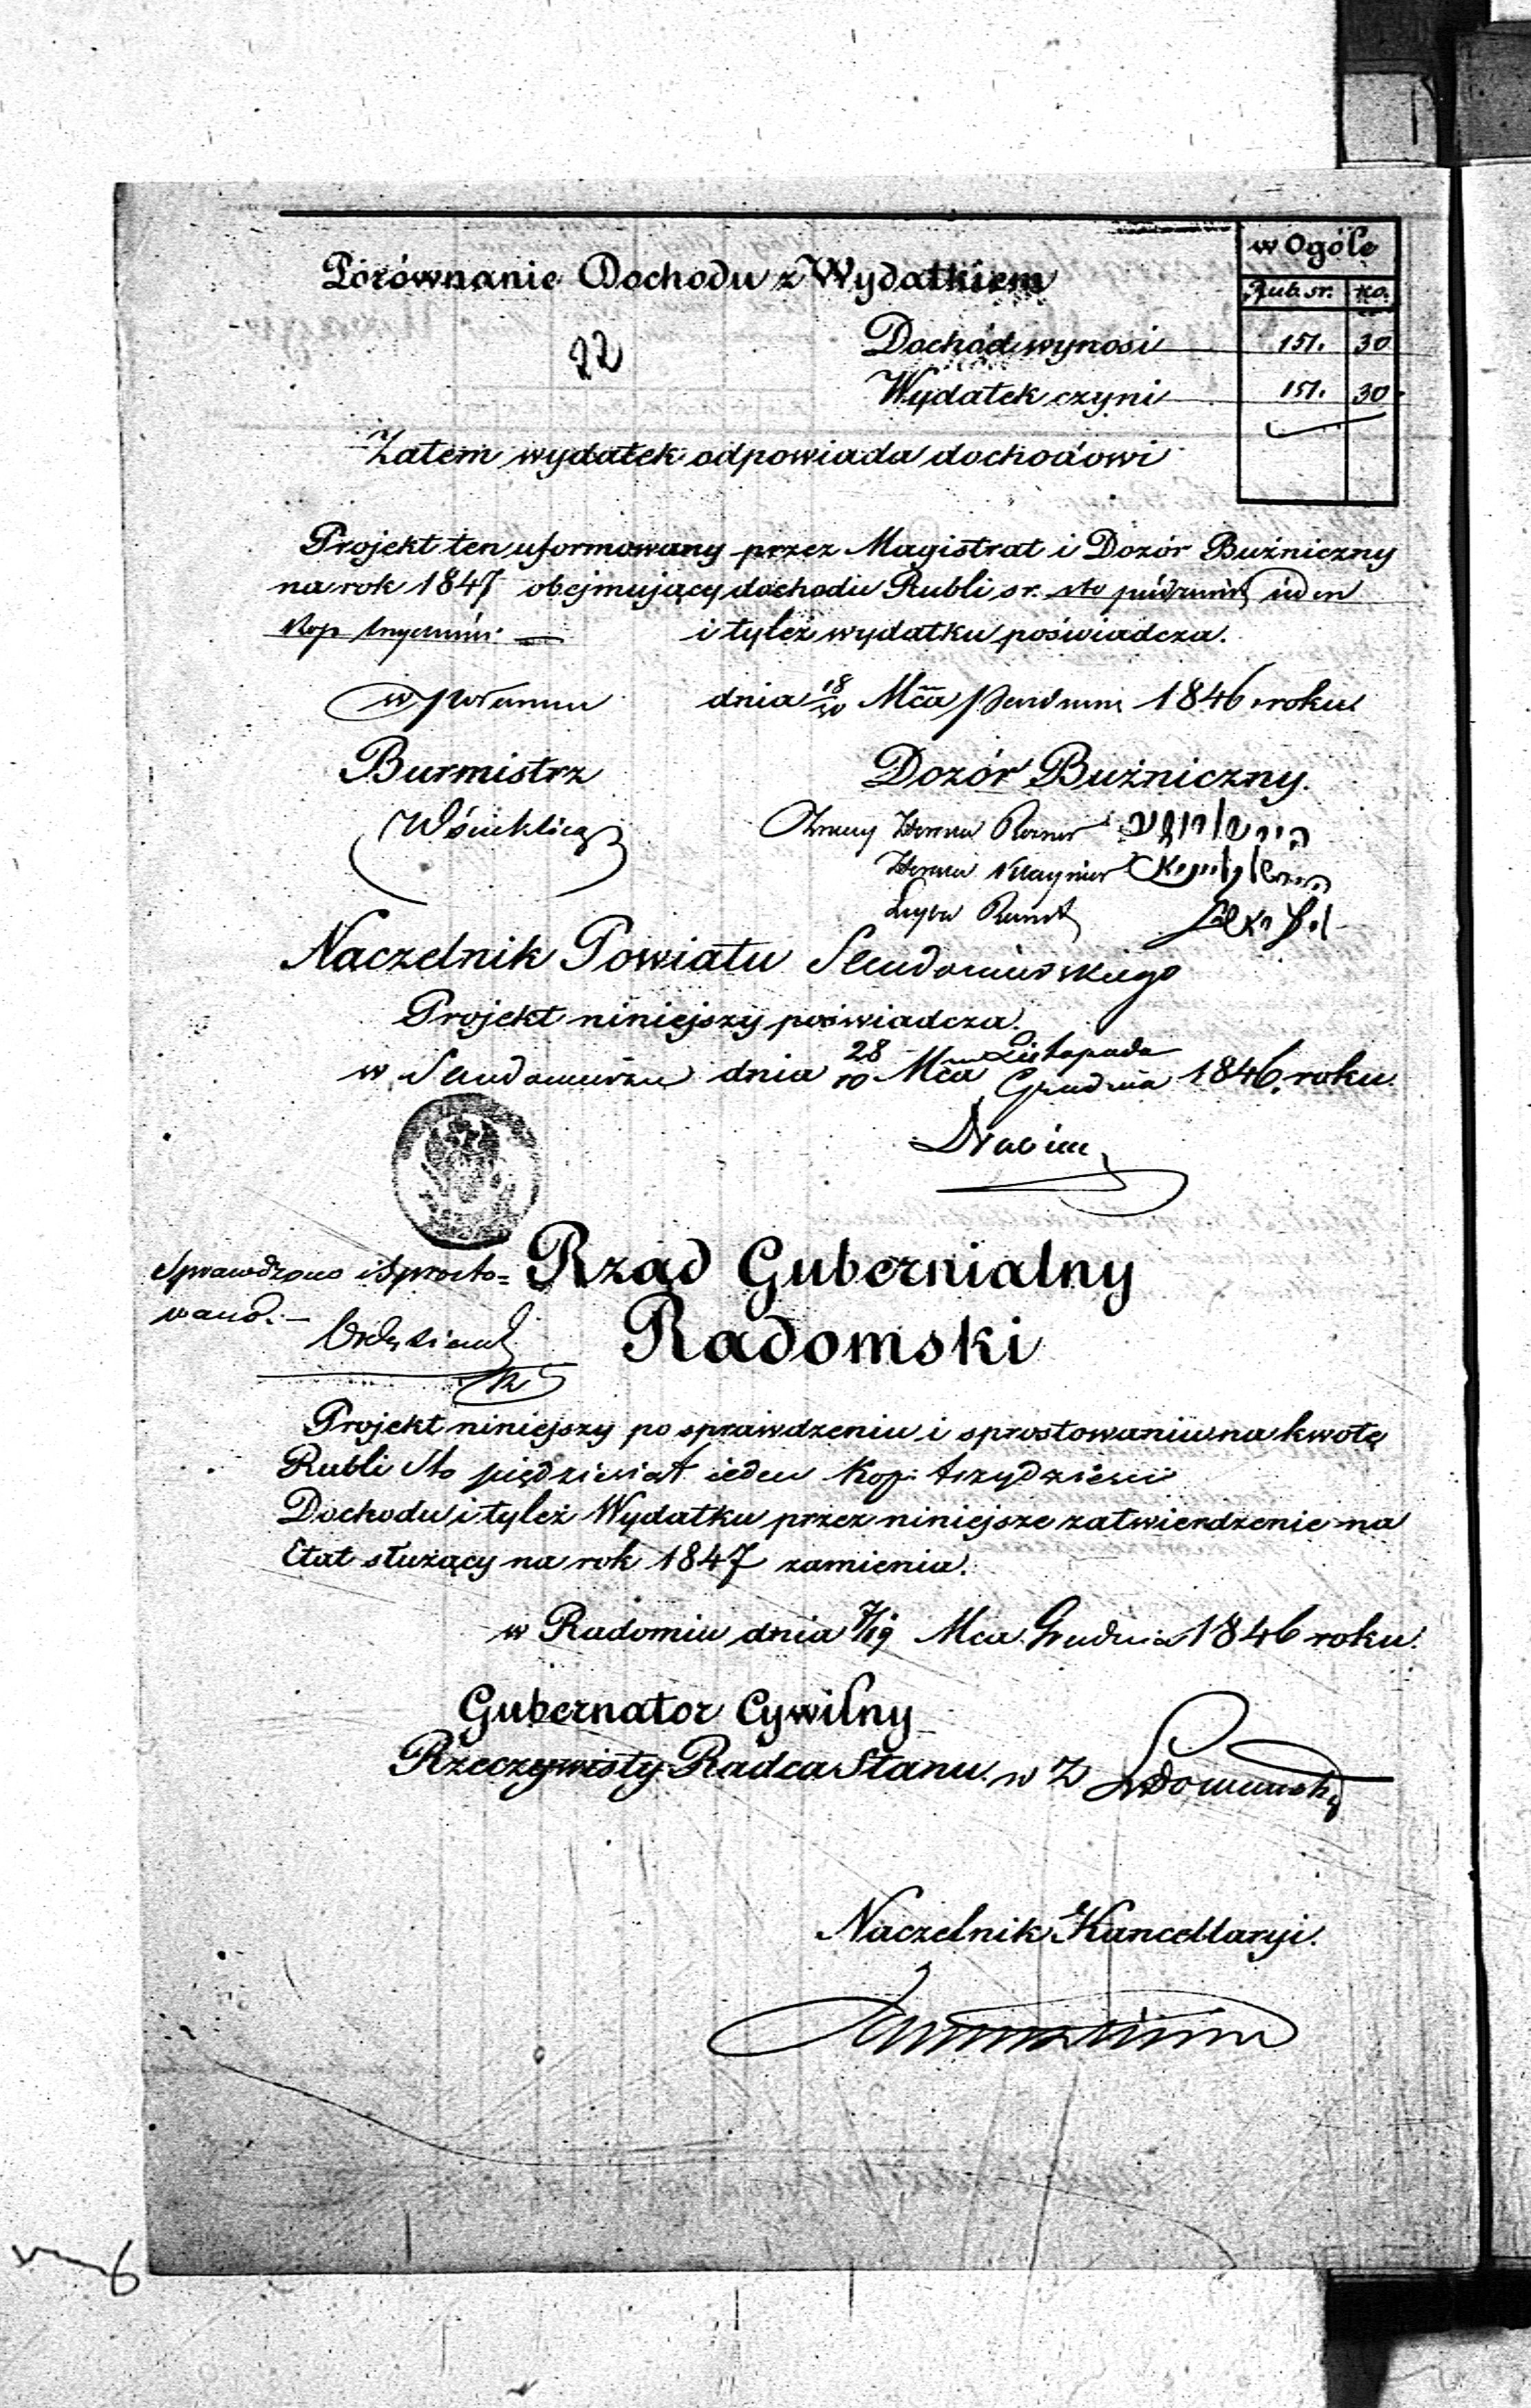 w Ogóle
Rub. sr. ko.
Porównanie Dochodu z Wydatkiem
Dochód wynosi 151. 30
22
Wydatek czyni 151. 30
Zatem wydatek odpowiada dochodowi
Projekt ten uformowany przez Magistrat i Dozór Bużniczny
na rok 1847 obejmujący dochodu Rubli sr. sto
Kop i tyleż wydatku poświadcza.
w dnia 18 Mca 1846 roku.
Burmistrz Dozór Bużniczny.
Naczelnik Powiatu Sandomierskiego
Projekt niniejszy poświadcza.
w Sandomierzu dnia 28/10 Mca Listopada/Grudnia 1846 roku.
Sprawdzono i Sprosto=
wano.-
Rząd Gubernialny
Radomski
Projekt niniejszy po sprawdzeniu i sprostowaniu na kwotę
Rubli Sto pięдziesiąt ieden Kop: trzydzieści
Dochodu i tyleż Wydatku przez niniejsze zatwierdzenie na
Etat służący na rok 1847 zamienia.
w Radomiu dnia 7/19 Mca Grudnia 1846 roku.
Gubernator Cywilny
Rzeczywisty Radca Stanu w Z
Naczelnik Kancellaryi.